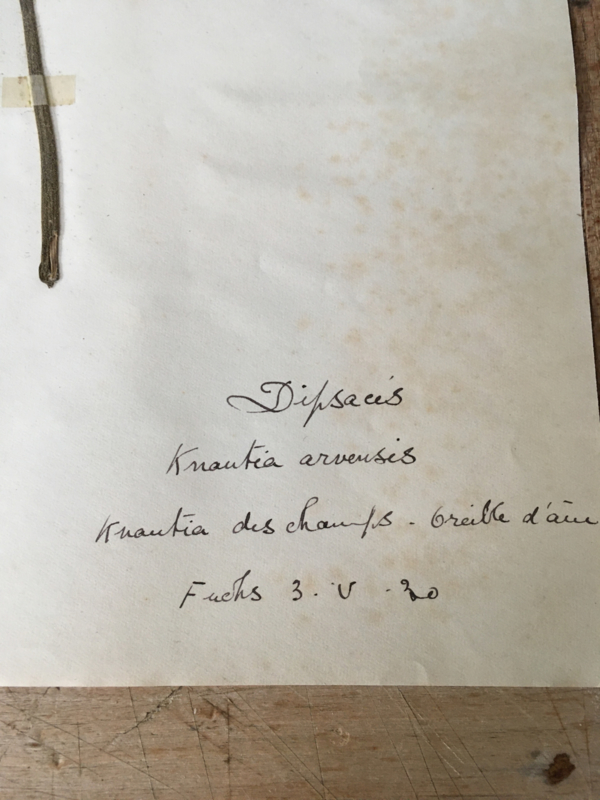 Dipsacés
Knautia arvensis
Knautia des champs - Oreille d'âne
Fuchs 3. V. 20